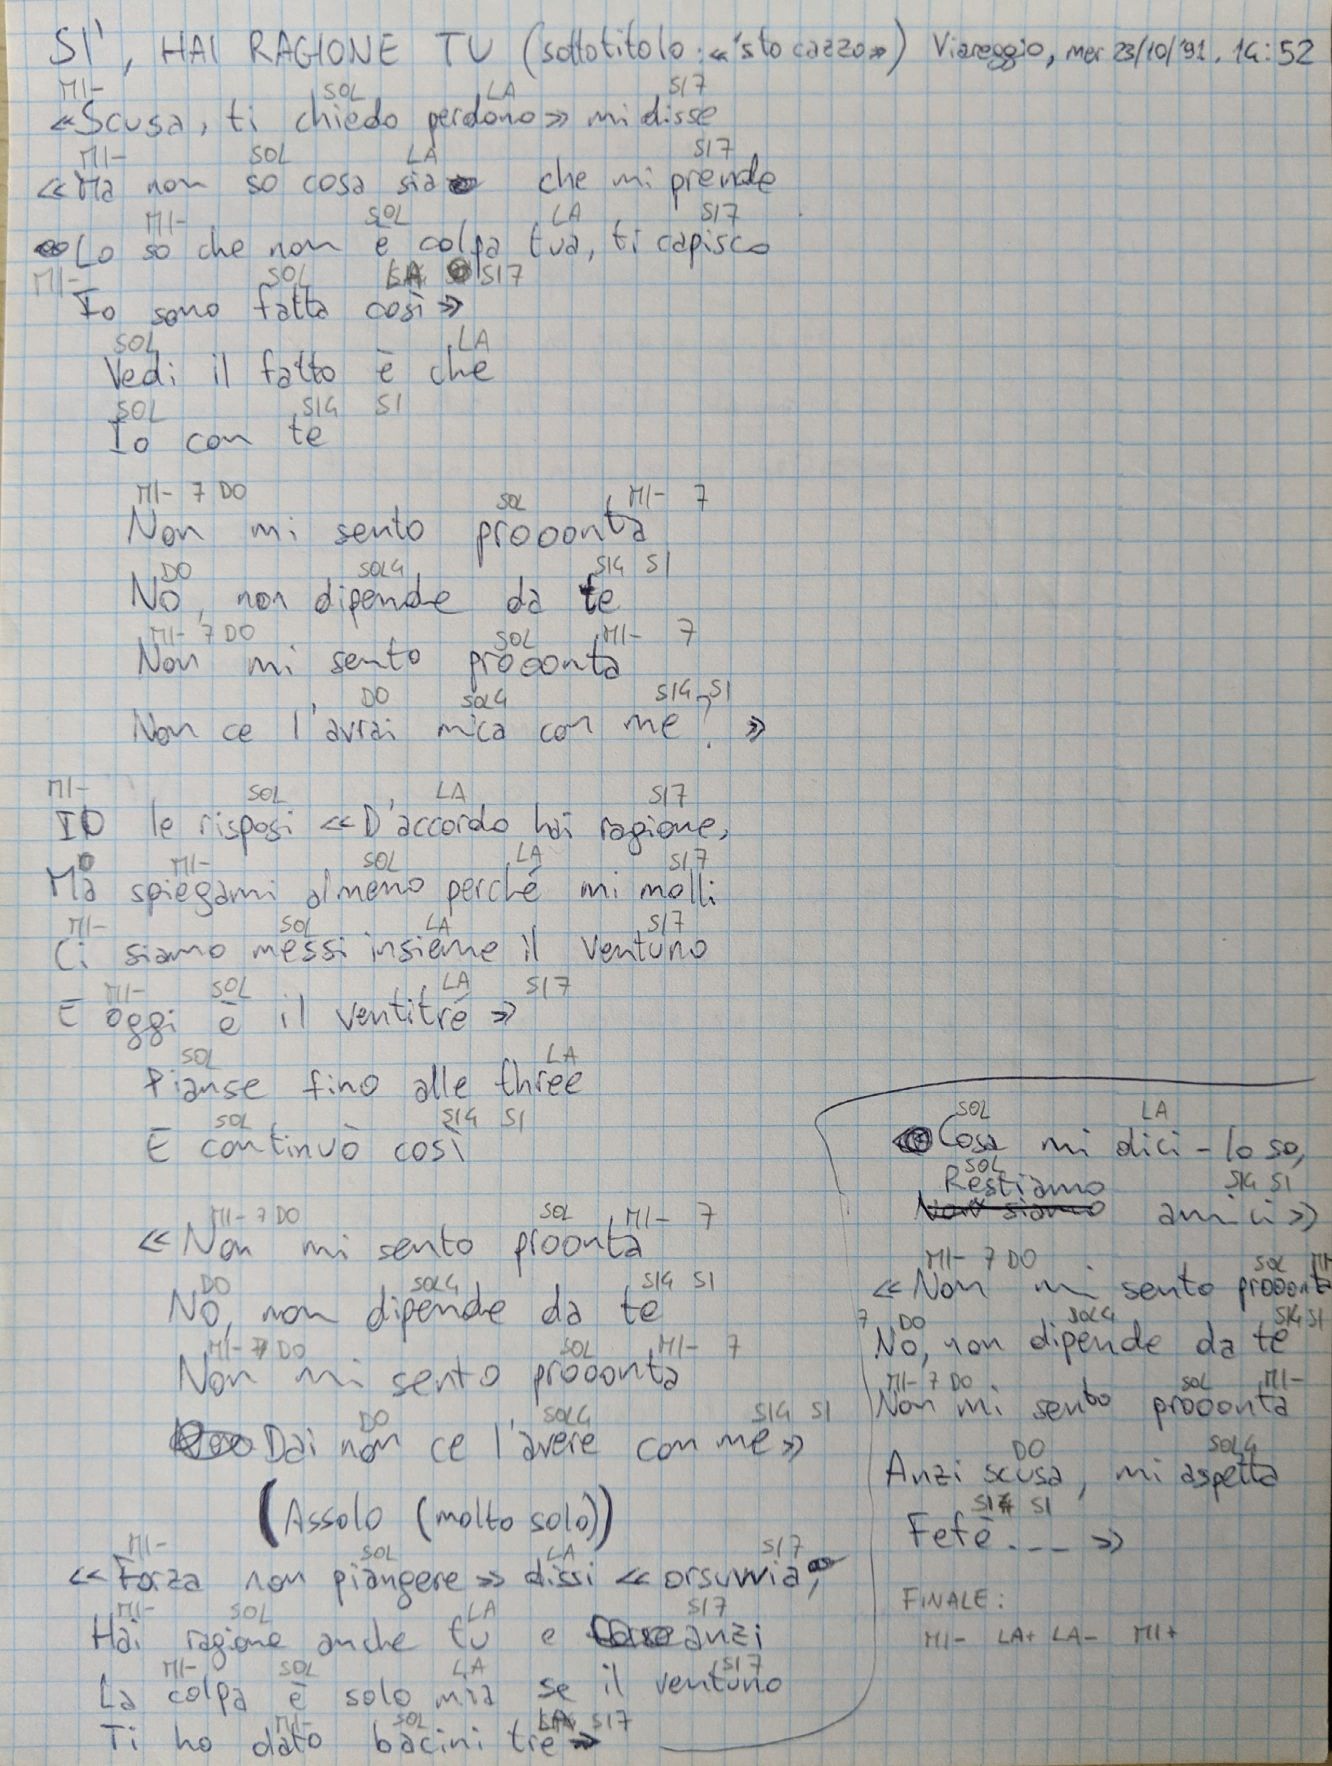 SI', HAI RAGIONE TU (sottotitolo: «'sto cazzo») Viareggio, mer 23/10/'91. 14:52
MI- SOL LA SI7
«Scusa, ti chiedo perdono» mi disse
MI- SOL LA SI7
«Ma non so cosa sia che mi prende
MI- SOL LA SI7
Lo so che non è colpa tua, ti capisco
MI- SOL SI7
Io sono fatta così»
SOL LA
Vedi il fatto è che
SOL SI4 SI
Io con te
MI- 7 DO SOL MI- 7
Non mi sento prooonta
DO SOL4 SI4 SI
No, non dipende da te
MI- 7 DO SOL MI- 7
Non mi sento prooonta
DO SOL4 SI4 SI
Non ce l'avrai mica con me? »
MI- SOL LA SI7
IO le risposi «D'accordo hai ragione,
MI- SOL LA SI7
Ma spiegami almeno perché mi molli
MI- SOL LA SI7
Ci siamo messi insieme il ventuno
MI- SOL LA SI7
E oggi è il ventitré»
SOL LA
Pianse fino alle three
SOL SI4 SI
E continuò così
MI- 7 DO SOL MI- 7
«Non mi sento proonta
DO SOL4 SI4 SI
No, non dipende da te
MI- 7 DO SOL MI- 7
Non mi sento prooonta
DO SOL4 SI4 SI
Dai non ce l'avere con me»
(Assolo (molto solo))
MI- SOL LA SI7
«Forza non piangere» dissi «orsuvvia,
MI- SOL LA SI7
Hai ragione anche tu e anzi
MI- SOL LA SI7
La colpa è solo mia se il ventuno
MI- SOL LA SI7
Ti ho dato bacini tre»
SOL LA
Cosa mi dici - lo so,
SOL SI4 SI
Restiamo
Non siamo amici»
MI- 7 DO SOL MI-
«Non mi sento prooonta
7 DO SOL4 SI4 SI
No, non dipende da te
MI- 7 DO SOL MI-
Non mi sento prooonta
DO SOL4
Anzi scusa, mi aspetta
SI4 SI
Fefè... »
FINALE:
MI- LA+ LA- MI+